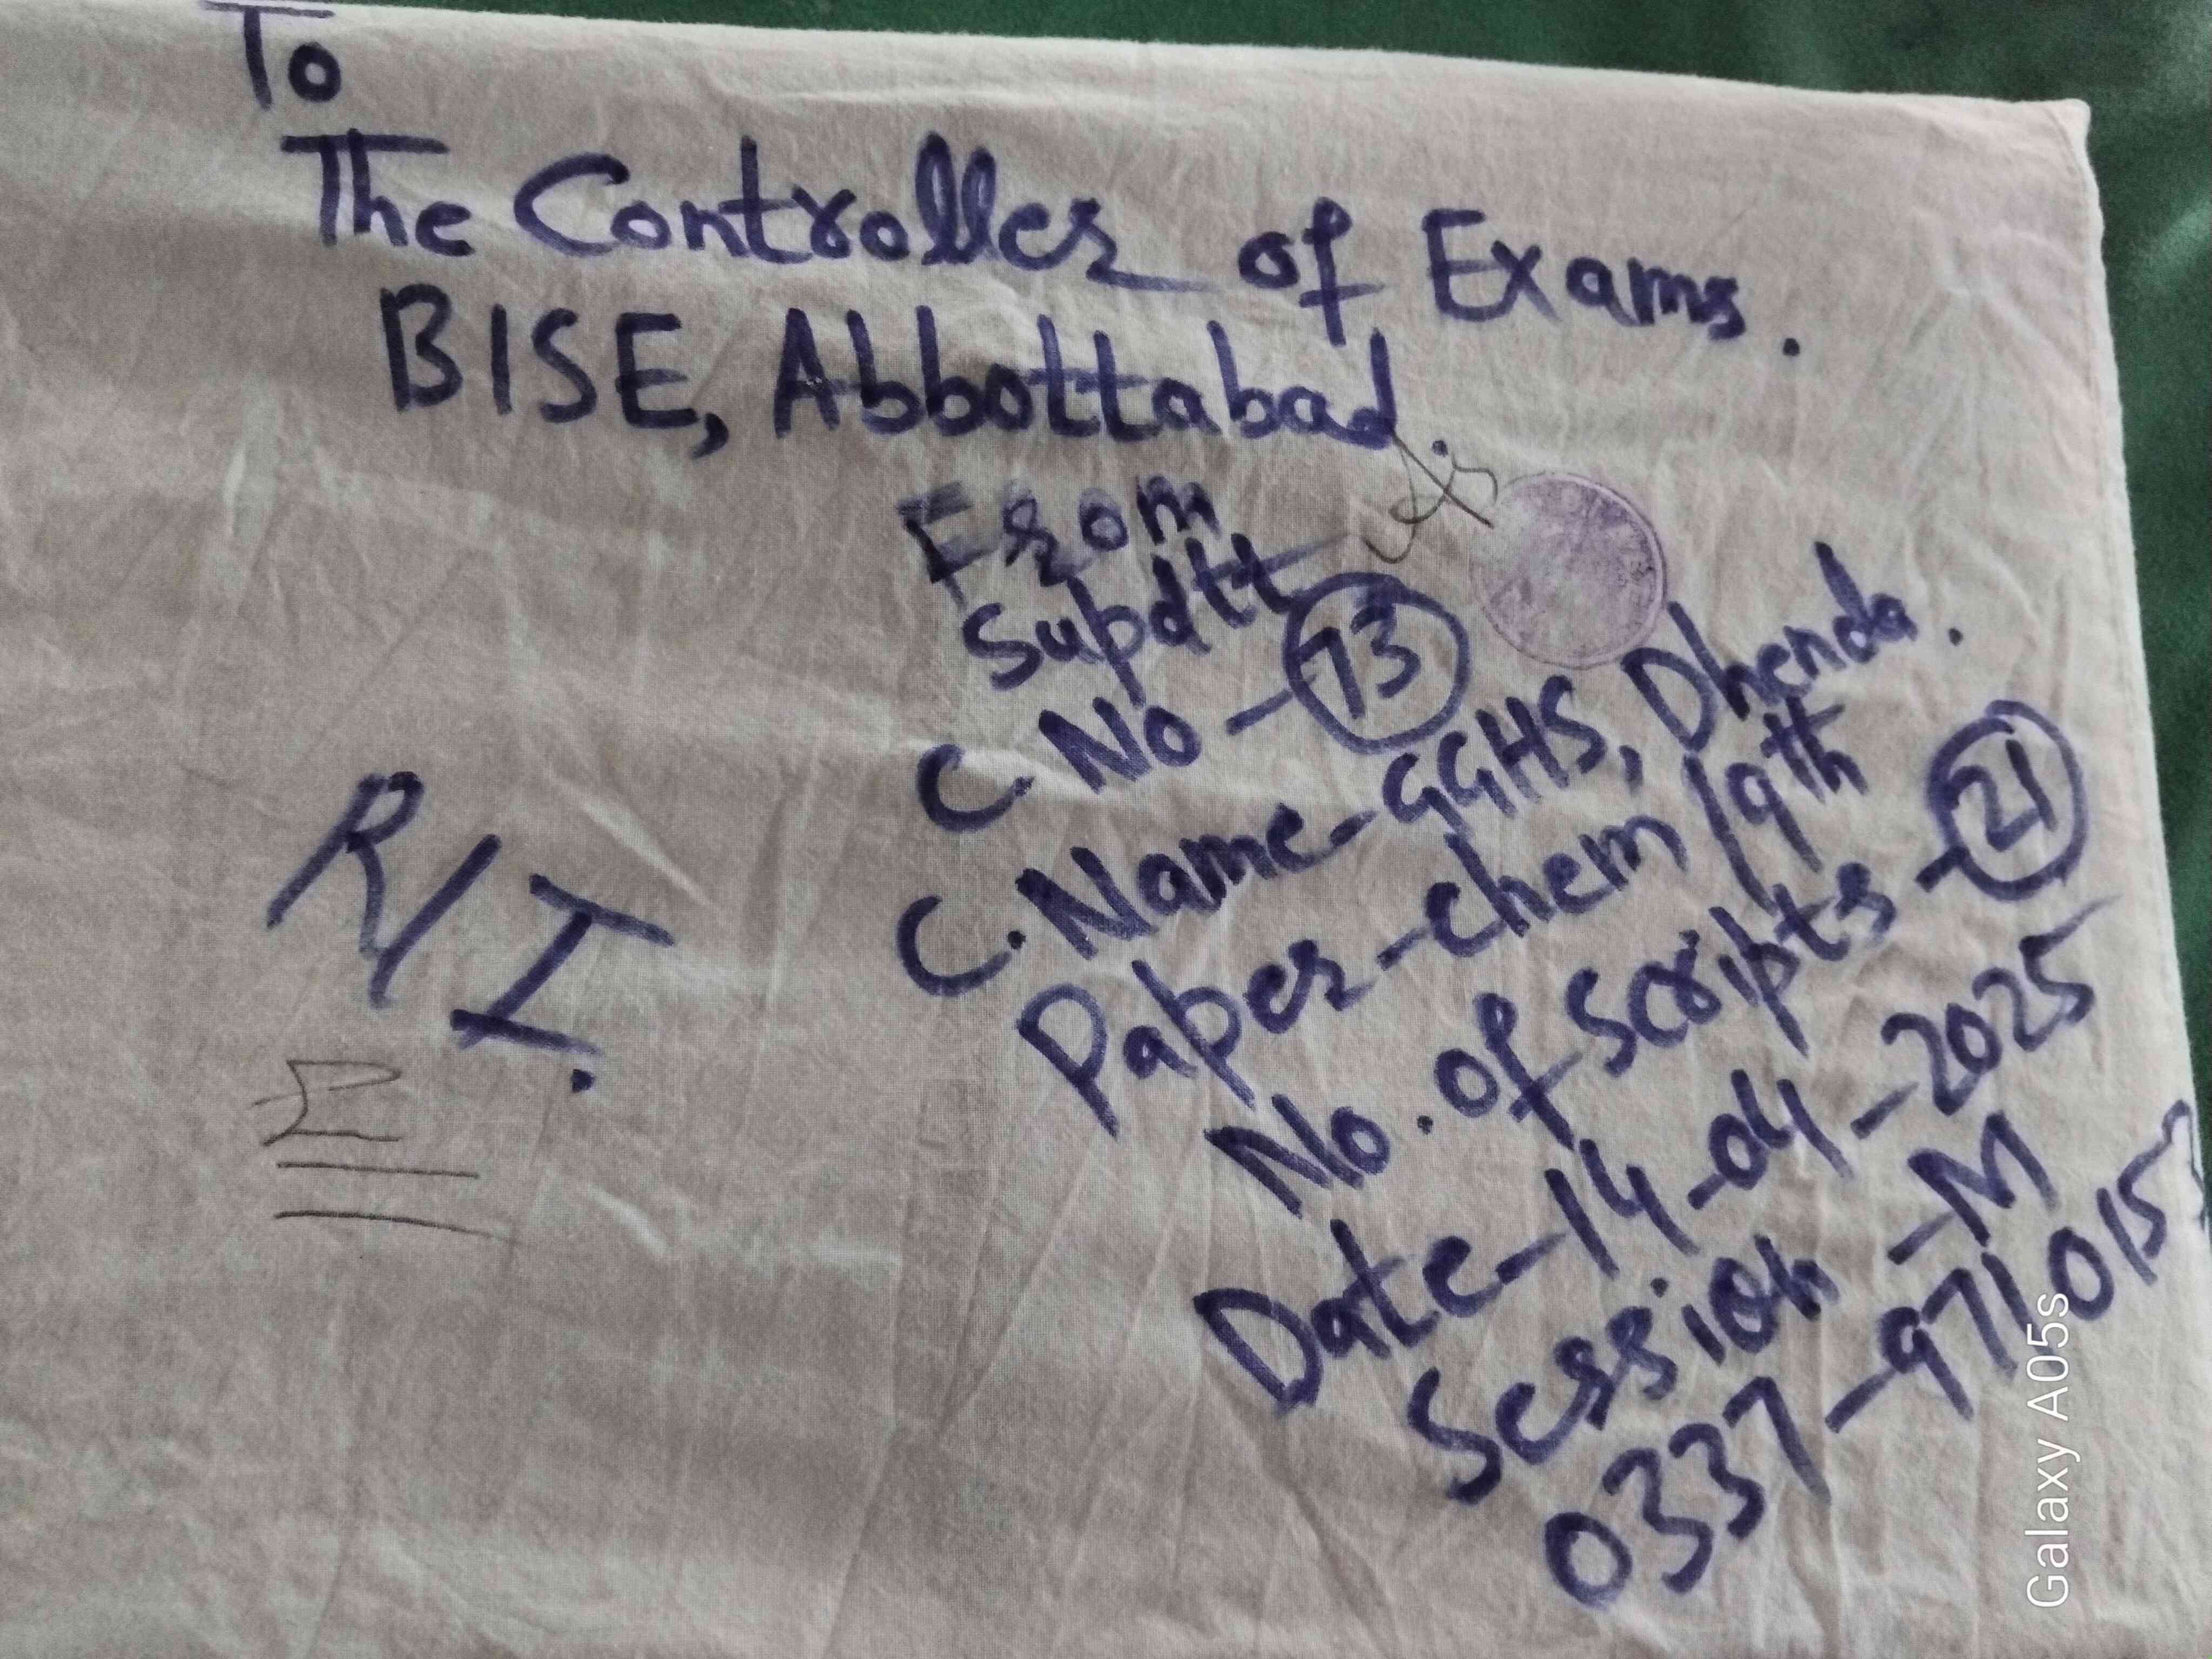 To
The Controller of Exams.
BISE, Abbottabad.
From
Supdtt
C. No - 73
C. Name - GGHS, Dhenda.
Paper - Chem / 9th
No. of Scripts - 21
Date - 14-04-2025
Session - M
0337-971015
R/I.
Galaxy A05s